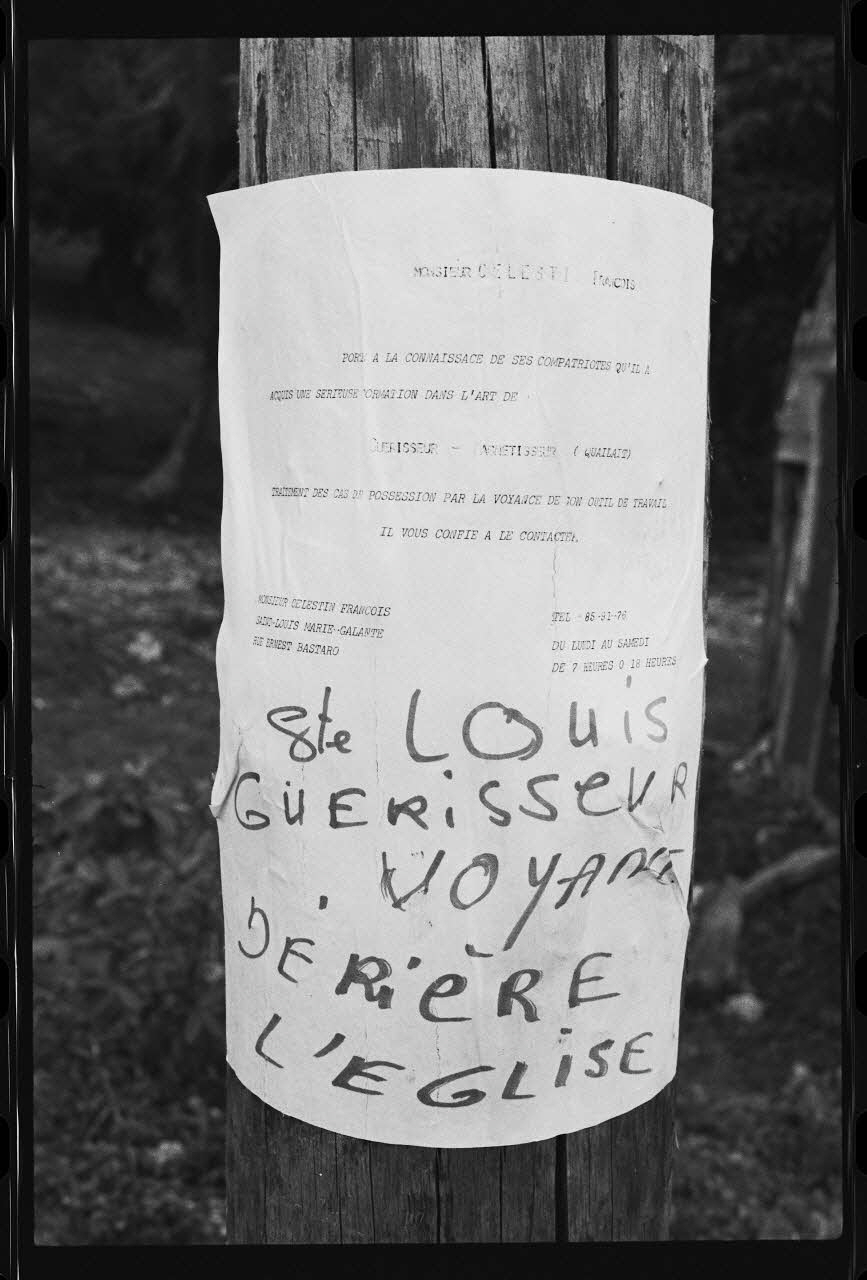 MONSIEUR CELESTI FRANCOIS
PORT A LA CONNAISSACE DE SES COMPATRIOTES QU'IL A
ACQUIS UNE SERIEUSE FORMATION DANS L'ART DE
GUERISSEUR - MAGNETISSEUR ( QUAILAIT)
TRAITEMENT DES CAS DE POSSESSION PAR LA VOYANCE DE SON OUTIL DE TRAVAIL
IL VOUS CONFIE A LE CONTACTER.
MONSIEUR CELESTIN FRANCOIS
SAINT-LOUIS MARIE-GALANTE
RUE ERNEST BASTARO
TEL 85-91-76
DU LUNDI AU SAMEDI
DE 7 HEURES 0 18 HEURES
Ste LOUiS
GUERiSSEUR
VOYANT
DERiÈRE
L'EGLiSE